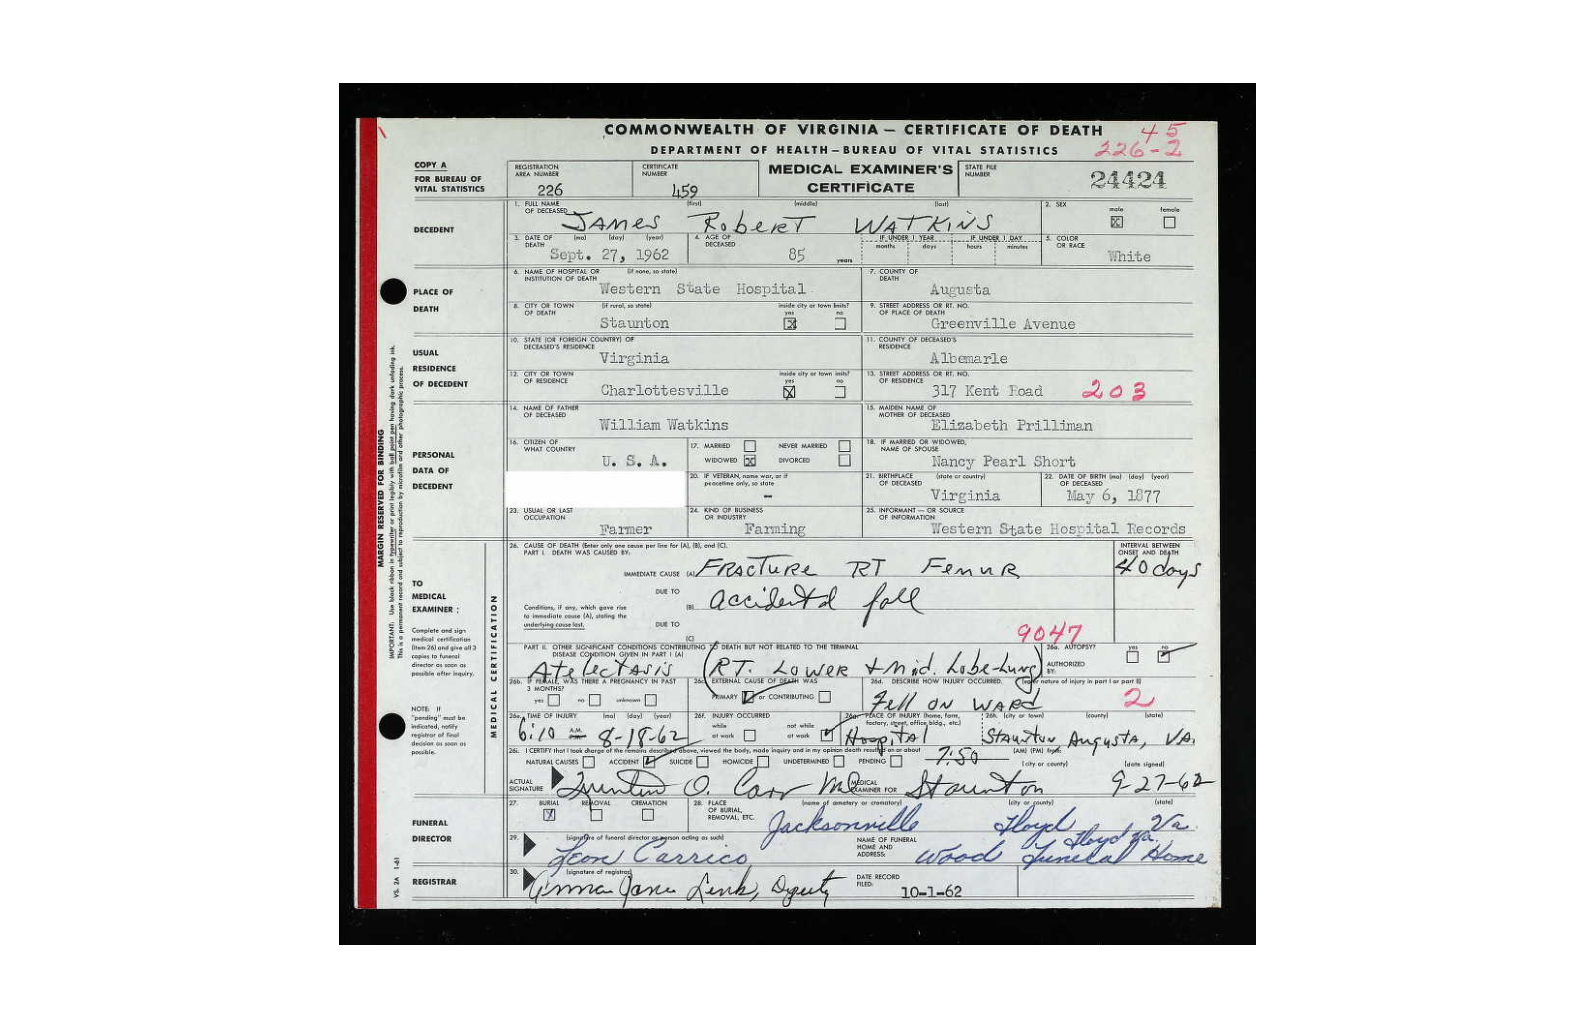 COMMONWEALTH OF VIRGINIA — CERTIFICATE OF DEATH 45
DEPARTMENT OF HEALTH—BUREAU OF VITAL STATISTICS 226-2
COPY A
FOR BUREAU OF VITAL STATISTICS
REGISTRATION AREA NUMBER 226
CERTIFICATE NUMBER 459
MEDICAL EXAMINER'S CERTIFICATE
STATE FILE NUMBER 24424
DECEDENT
1. FULL NAME OF DECEASED (first) (middle) (last) James Robert Watkins
2. SEX male ☒ female ☐
3. DATE OF DEATH (mo) (day) (year) Sept. 27, 1962
4. AGE OF DECEASED 85 years IF UNDER 1 YEAR months days IF UNDER 1 DAY hours minutes
5. COLOR OR RACE White
PLACE OF DEATH
6. NAME OF HOSPITAL OR INSTITUTION OF DEATH (if none, so state) Western State Hospital
7. COUNTY OF DEATH Augusta
8. CITY OR TOWN OF DEATH (if rural, so state) Staunton inside city or town limits? yes ☒ no ☐
9. STREET ADDRESS OR RT. NO. OF PLACE OF DEATH Greenville Avenue
USUAL RESIDENCE OF DECEDENT
10. STATE (OR FOREIGN COUNTRY) OF DECEASED'S RESIDENCE Virginia
11. COUNTY OF DECEASED'S RESIDENCE Albemarle
12. CITY OR TOWN OF RESIDENCE Charlottesville inside city or town limits? yes ☒ no ☐
13. STREET ADDRESS OR RT. NO. OF RESIDENCE 317 Kent Road 203
PERSONAL DATA OF DECEDENT
14. NAME OF FATHER OF DECEASED William Watkins
15. MAIDEN NAME OF MOTHER OF DECEASED Elizabeth Prilliman
16. CITIZEN OF WHAT COUNTRY U. S. A.
17. MARRIED ☐ NEVER MARRIED ☐ WIDOWED ☒ DIVORCED ☐
18. IF MARRIED OR WIDOWED, NAME OF SPOUSE Nancy Pearl Short
20. IF VETERAN, name war, or if peacetime only, so state –
21. BIRTHPLACE OF DECEASED (state or country) Virginia
22. DATE OF BIRTH (mo) (day) (year) OF DECEASED May 6, 1877
23. USUAL OR LAST OCCUPATION Farmer
24. KIND OF BUSINESS OR INDUSTRY Farming
25. INFORMANT — OR SOURCE OF INFORMATION Western State Hospital Records
MARGIN RESERVED FOR BINDING
IMPORTANT: Use black ribbon in typewriter or print legibly with ball point pen having dark unfading ink.
This is a permanent record and subject to reproduction by microfilm and other photographic process.
TO MEDICAL EXAMINER:
Complete and sign medical certification (Item 26) and give all 3 copies to funeral director as soon as possible after inquiry.
NOTE: IF "pending" must be indicated, notify registrar of final decision as soon as possible.
MEDICAL CERTIFICATION
26. CAUSE OF DEATH (Enter only one cause per line for (A), (B), and (C).
PART I. DEATH WAS CAUSED BY:
INTERVAL BETWEEN ONSET AND DEATH
IMMEDIATE CAUSE (A) Fracture RT Femur 40 days
DUE TO (B) accidental fall
Conditions, if any, which gave rise to immediate cause (A), stating the underlying cause last.
DUE TO (C) 9047
PART II. OTHER SIGNIFICANT CONDITIONS CONTRIBUTING TO DEATH BUT NOT RELATED TO THE TERMINAL DISEASE CONDITION GIVEN IN PART I (A)
Atelectasis (RT. Lower + Mid. Lobe-Lung)
26a. AUTOPSY? yes ☐ no ☑ AUTHORIZED BY:
26b. IF FEMALE, WAS THERE A PREGNANCY IN PAST 3 MONTHS? yes ☐ no ☐ unknown ☐
26c. EXTERNAL CAUSE OF DEATH WAS PRIMARY ☑ or CONTRIBUTING ☐
26d. DESCRIBE HOW INJURY OCCURRED. (enter nature of injury in part I or part II) Fell on ward 2
26e. TIME OF INJURY (mo) (day) (year) 6:10 8-18-62
26f. INJURY OCCURRED while at work ☐ not while at work ☑
26g. PLACE OF INJURY (home, farm, factory, street, office bldg., etc.) Hospital
26h. (city or town) (county) (state) Staunton Augusta, VA.
26i. I CERTIFY that I took charge of the remains described above, viewed the body, made inquiry and in my opinion death resulted on or about 7:50 (AM) (PM) from:
NATURAL CAUSES ☐ ACCIDENT ☑ SUICIDE ☐ HOMICIDE ☐ UNDETERMINED ☐ PENDING ☐ (city or county) (date signed)
ACTUAL SIGNATURE O. Carr MEDICAL EXAMINER FOR Staunton 9-27-62
FUNERAL DIRECTOR
27. BURIAL ☒ REMOVAL ☐ CREMATION ☐
28. PLACE OF BURIAL, REMOVAL, ETC. (name of cemetery or crematory) (city or county) (state) Jacksonville Floyd Va
29. (signature of funeral director or person acting as such) Leon Carrico
NAME OF FUNERAL HOME AND ADDRESS: Wood Funeral Home Floyd Va.
REGISTRAR
30. (signature of registrar) Jane Link, Deputy
DATE RECORD FILED: 10-1-62
VS. 2A 1-61